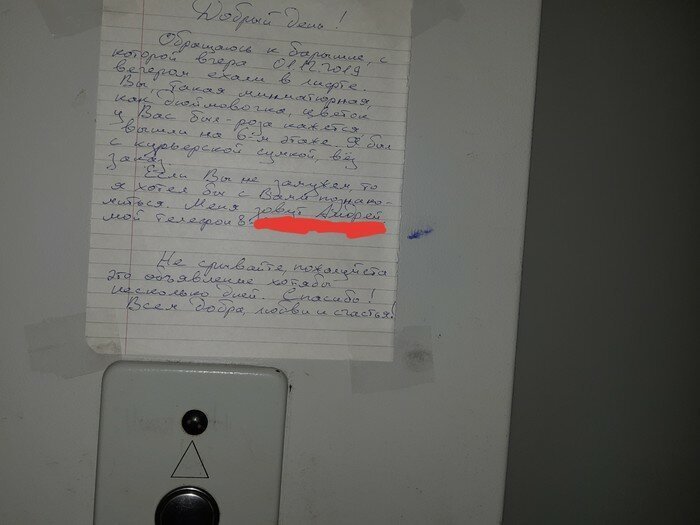 Добрый день!
Обращаюсь к барышне, с
которой вчера 01.12.2019
вечером ехали в лифте.
Вы, такая миниатюрная,
как дюймовочка, цветок
у Вас был - роза кажется
вышли на 6-ом этаже. Я был
с курьерской сумкой, вёз
заказ.
Если Вы не замужем, то
я хотел бы с Вами познако-
миться. Меня зовут Андрей
мой телефон 8
Не срывайте, пожалуйста
это объявление хотябы
несколько дней. Спасибо!
Всем добра, любви и счастья!